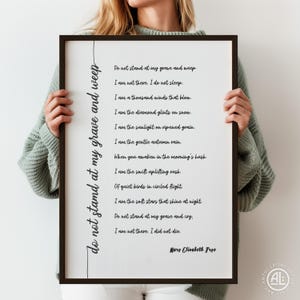 do not stand at my grave and weep
Do not stand at my grave and weep
I am not there. I do not sleep.
I am a thousand winds that blow.
I am the diamond glints on snow.
I am the sunlight on ripened grain.
I am the gentle autumn rain.
When you awaken in the morning's hush
I am the swift uplifting rush
Of quiet birds in circled flight.
I am the soft stars that shine at night.
Do not stand at my grave and cry,
I am not there. I did not die.
Mary Elizabeth Frye